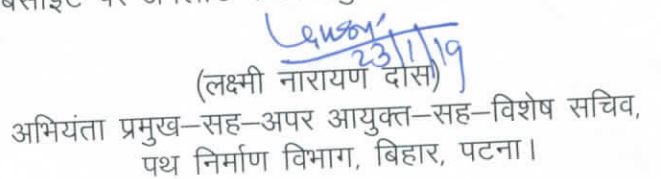 पर
23/1/19
(लक्ष्मी नारायण दास)
अभियंता प्रमुख–सह–अपर आयुक्त–सह–विशेष सचिव,
पथ निर्माण विभाग, बिहार, पटना।